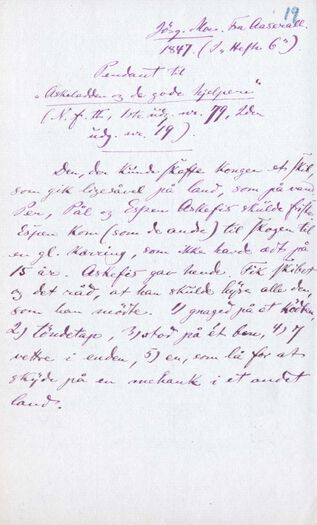 19
Jørg. Moe. Fra Aaseral.
1847. (I "Hefte 6")
Pendant til
"Askeladden og de gode hjelpere"
(N. f. æ., 1ste udg. nr. 79, 2den
udg. nr. 19)
Den, der kunde skaffe kongen et skib,
som gik ligesåvel på land, som på vand
Per, Pål og Espen Askefis skulde friste.
Espen kom (som de andre) til skogen til
en gl. kærring, som ikke havde ædt på
15 år. Askefis gav hende. Fik skibet
og det råd, at han skulde hyse alle dem,
som han mødte. 1) gnaged på et
2) töndetap, 3) stod på ét ben, 4) 7
vettre i enden, 5) en, som lå for at
skyde på en i et andet
land.